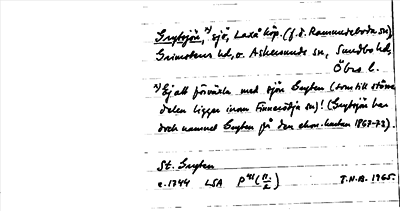 Grytsjön, ˣ⁾ sjö, Laxå köp. (f.d. Ramundeboda sn)
Grimstens hd, o. Askersunds sn, Sundbo hd,
Öbro l.
ˣ⁾ Ej att förväxla med sjön Gryten (som till större
delen ligger inom Finnerödja sn)! (Grytsjön har
dock namnet Gryten på den ekon. kartan 1867-72).
St. Gryten
c. 1744 LSA P
T.N.B. 1965.